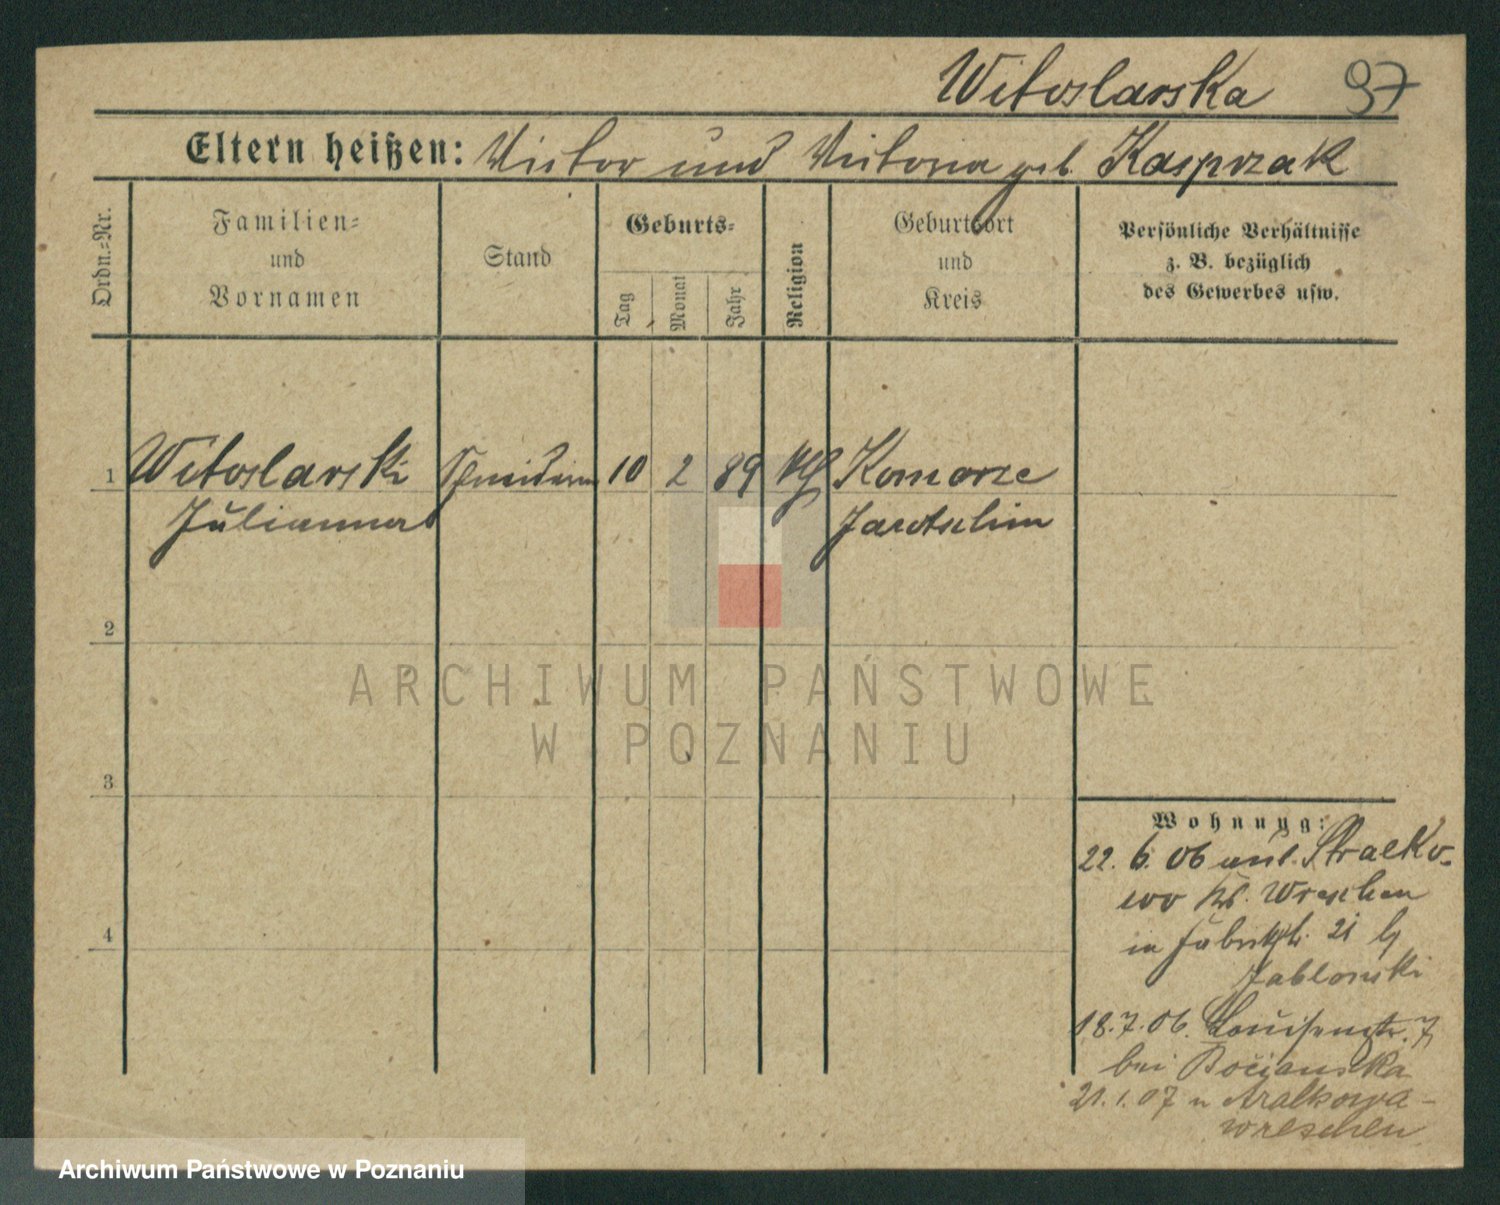 Witoslarska 97
Eltern heißen: Victor und Victoria geb. Kasprzak
Ordn.=Nr.
Familien=
und
Vornamen
Stand
Geburts=
Tag
Monat
Jahr
Religion
Geburtsort
und
Kreis
Persönliche Verhältnisse
z. B. bezüglich
des Gewerbes usw.
1 Witoslarski 10 2 89 Komorze
Julianna Jarotschin
2
3
4
Wohnung:
22. 6. 06 Stralko-
wo Kr. Wreschen
in 21 bj
Jablonski
18.7.06. Louisenstr. 7
bei Bocianska
21.1.07 n Stralkowo-
Wreschen
ARCHIWUM PAŃSTWOWE
W POZNANIU
Archiwum Państwowe w Poznaniu